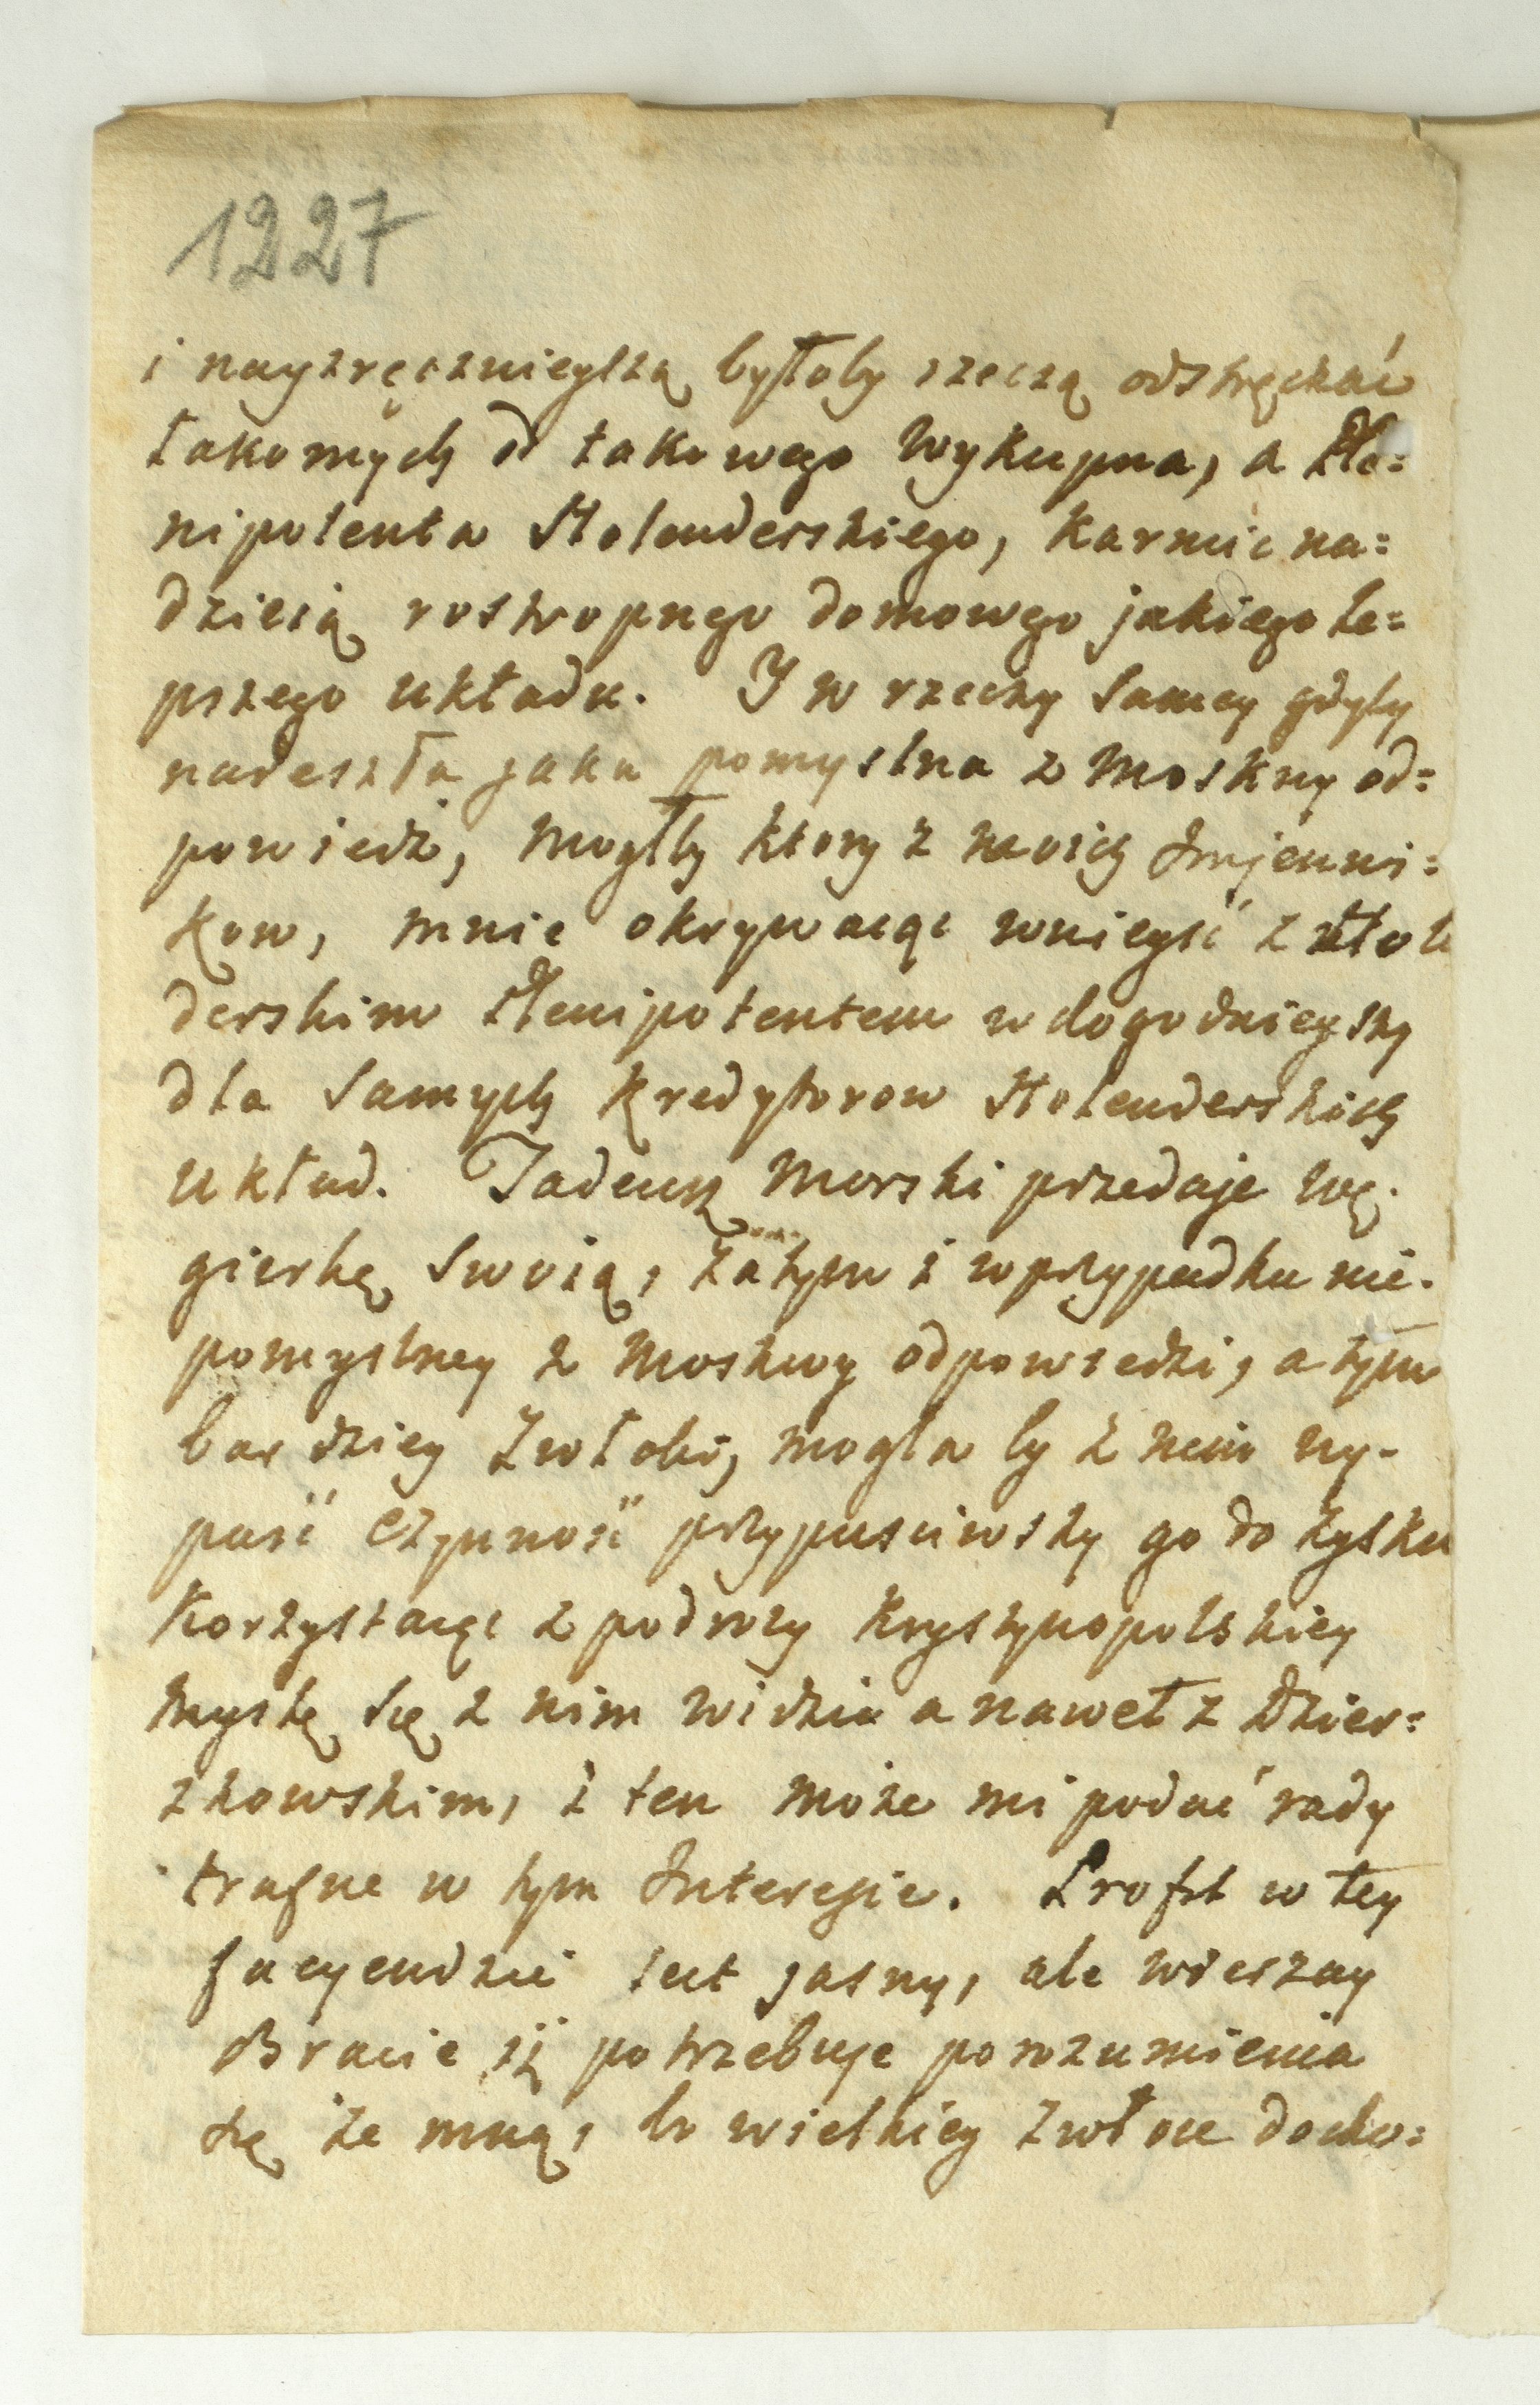 1227
i nayzręcznieyszą byłoby rzeczą odstręchać
łakomych od takowego Wykupna, a Ple=
nipotenta Hollenderskiego, karmić na=
dzieią rostropnego domowego jakiego le=
pszego układu. I w rzeczy Samey gdyby
nadeszła jaka pomyslna z Moskwy od=
powiedz, mogłby ktory z moich Imienni=
kow, mnie okrywaiąc wnieyść z Holen
derskim Plenipotentem w dogodnieyszy
dla Samych Kredytorow Holenderskich
układ. Tadeusz Morski przedaje Wę-
gierkę Swoią, zatym i w przypadku nie-
pomyslney z Moskwy odpowiedzi, a tym
bardziey Zwłoki, mogła by z nim wy-
paść czynność przypusciwszy go do zysku
Korzystaiąc z podrozy Krystynopolskiey
myslę Się z nim widzieć a nawet z Dzier=
zkowskim, i ten może mi podać rady
trafne w tym Interesie. Profit w tey
facyendzie iest jasny, ale wieszay
Bracie iż potrzebuje porozumienia
się ze mną, bo wielkiey zwłoce docho=